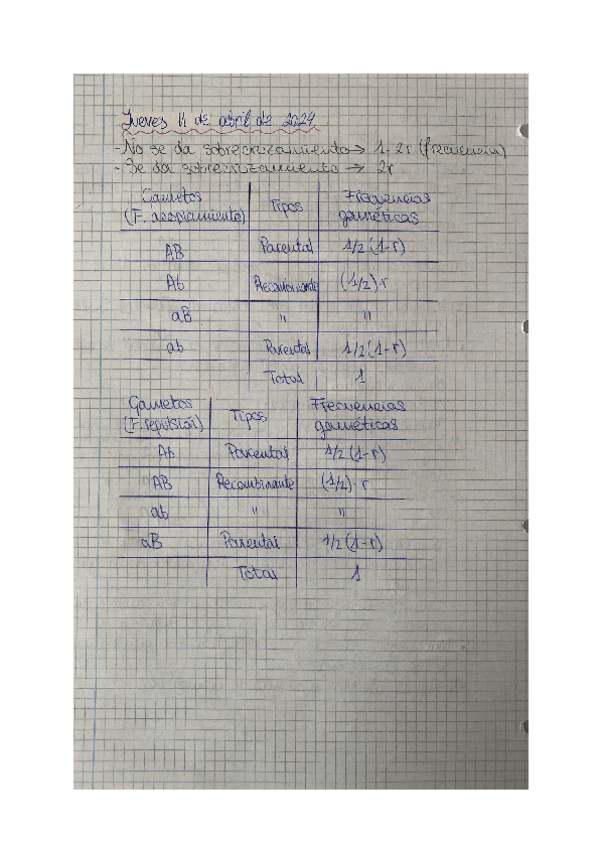 Jueves 11 de abril de 2024
-No se da sobrecruzamiento→ 1-2r (frecuencia)
-Se da sobrecruzamiento → 2r
Gametos (F. acoplamiento) Tipos Frecuencias gaméticas
AB Parental 1/2(1-r)
Ab Recombinante (1/2)·r
aB " "
ab Parental 1/2(1-r)
Total 1
Gametos (F. repulsión) Tipos Frecuencias gaméticas
Ab Parental 1/2(1-r)
AB Recombinante (1/2)·r
ab " "
aB Parental 1/2(1-r)
Total 1